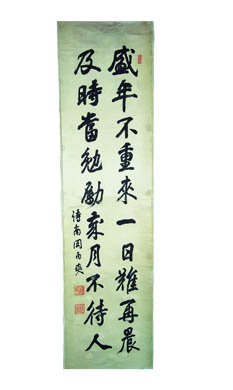 盛年不重來一日難再晨
及時當勉勵歲月不待人